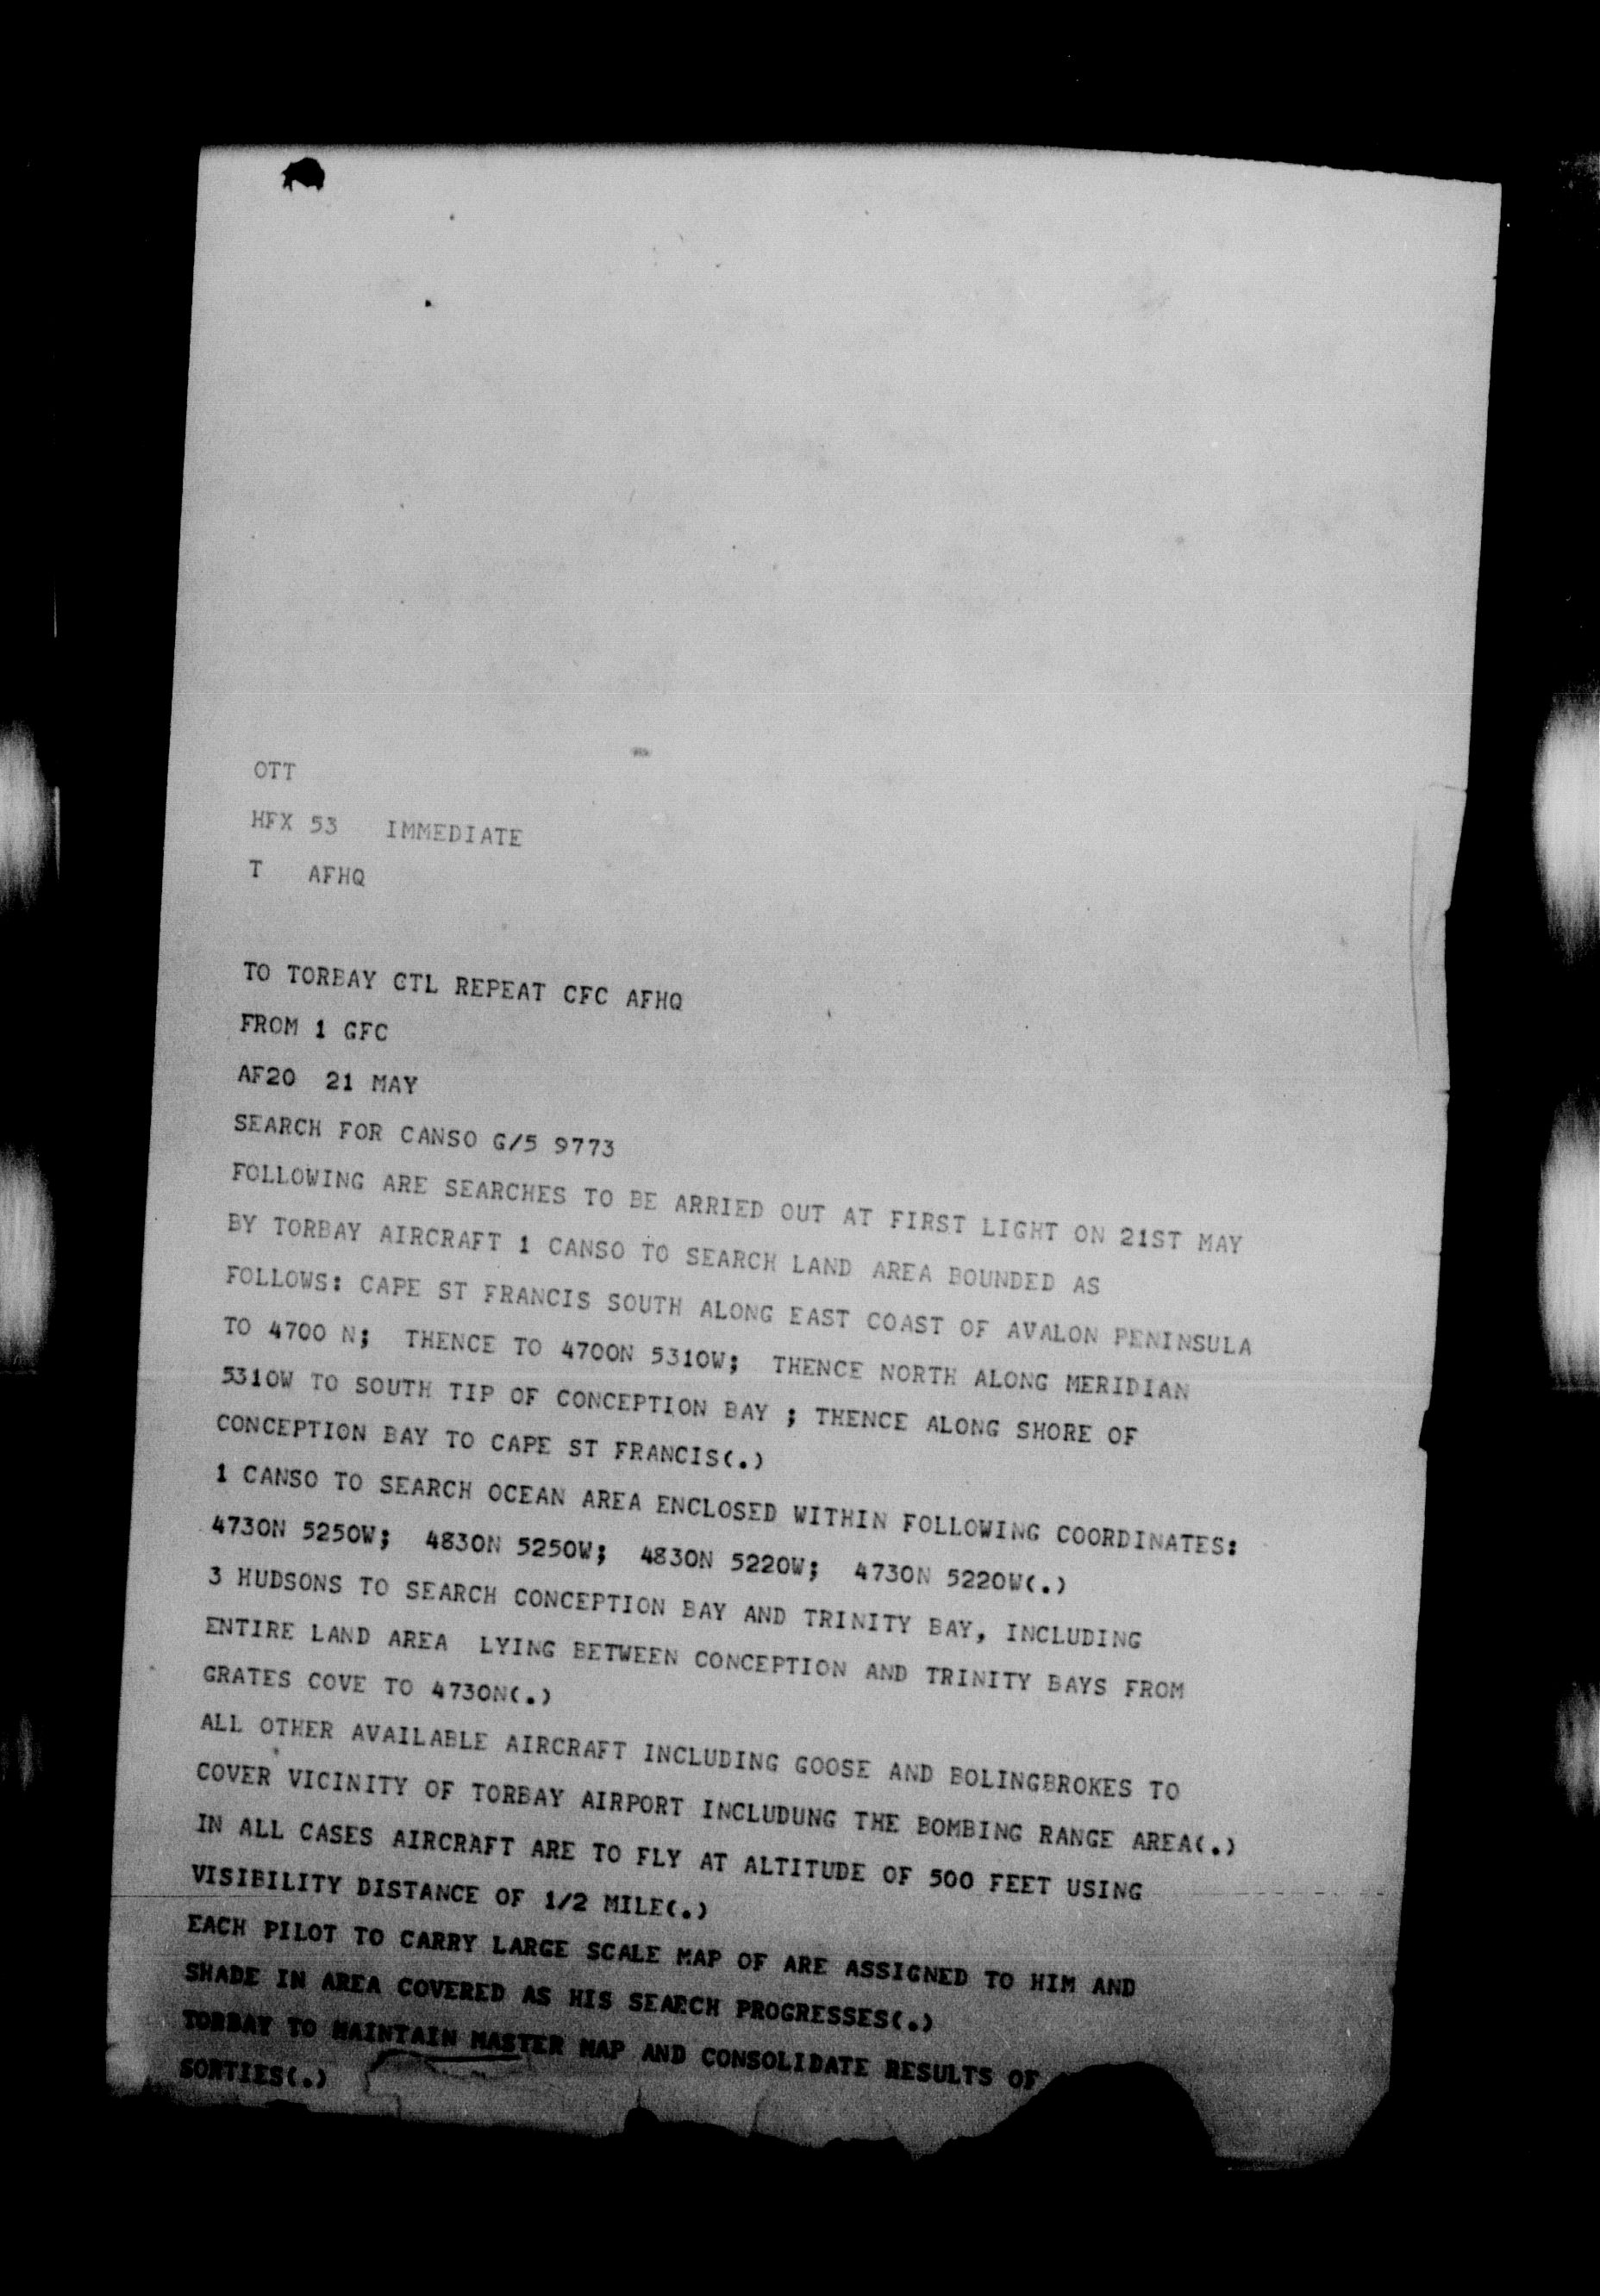 OTT
HFX 53 IMMEDIATE
T AFHQ
TO TORBAY CTL REPEAT CFC AFHQ
FROM 1 GFC
AF20 21 MAY
SEARCH FOR CANSO G/5 9773
FOLLOWING ARE SEARCHES TO BE ARRIED OUT AT FIRST LIGHT ON 21ST MAY
BY TORBAY AIRCRAFT 1 CANSO TO SEARCH LAND AREA BOUNDED AS
FOLLOWS: CAPE ST FRANCIS SOUTH ALONG EAST COAST OF AVALON PENINSULA
TO 4700 N; THENCE TO 4700N 5310W; THENCE NORTH ALONG MERIDIAN
5310W TO SOUTH TIP OF CONCEPTION BAY ; THENCE ALONG SHORE OF
CONCEPTION BAY TO CAPE ST FRANCIS(.)
1 CANSO TO SEARCH OCEAN AREA ENCLOSED WITHIN FOLLOWING COORDINATES:
4730N 5250W; 4830N 5250W; 4830N 5220W; 4730N 5220W(.)
3 HUDSONS TO SEARCH CONCEPTION BAY AND TRINITY BAY, INCLUDING
ENTIRE LAND AREA LYING BETWEEN CONCEPTION AND TRINITY BAYS FROM
GRATES COVE TO 4730N(.)
ALL OTHER AVAILABLE AIRCRAFT INCLUDING GOOSE AND BOLINGBROKES TO
COVER VICINITY OF TORBAY AIRPORT INCLUDUNG THE BOMBING RANGE AREA(.)
IN ALL CASES AIRCRAFT ARE TO FLY AT ALTITUDE OF 500 FEET USING
VISIBILITY DISTANCE OF 1/2 MILE(.)
EACH PILOT TO CARRY LARGE SCALE MAP OF ARE ASSIGNED TO HIM AND
SHADE IN AREA COVERED AS HIS SEARCH PROGRESSES(.)
TORBAY TO MAINTAIN MASTER MAP AND CONSOLIDATE RESULTS OF
SORTIES(.)